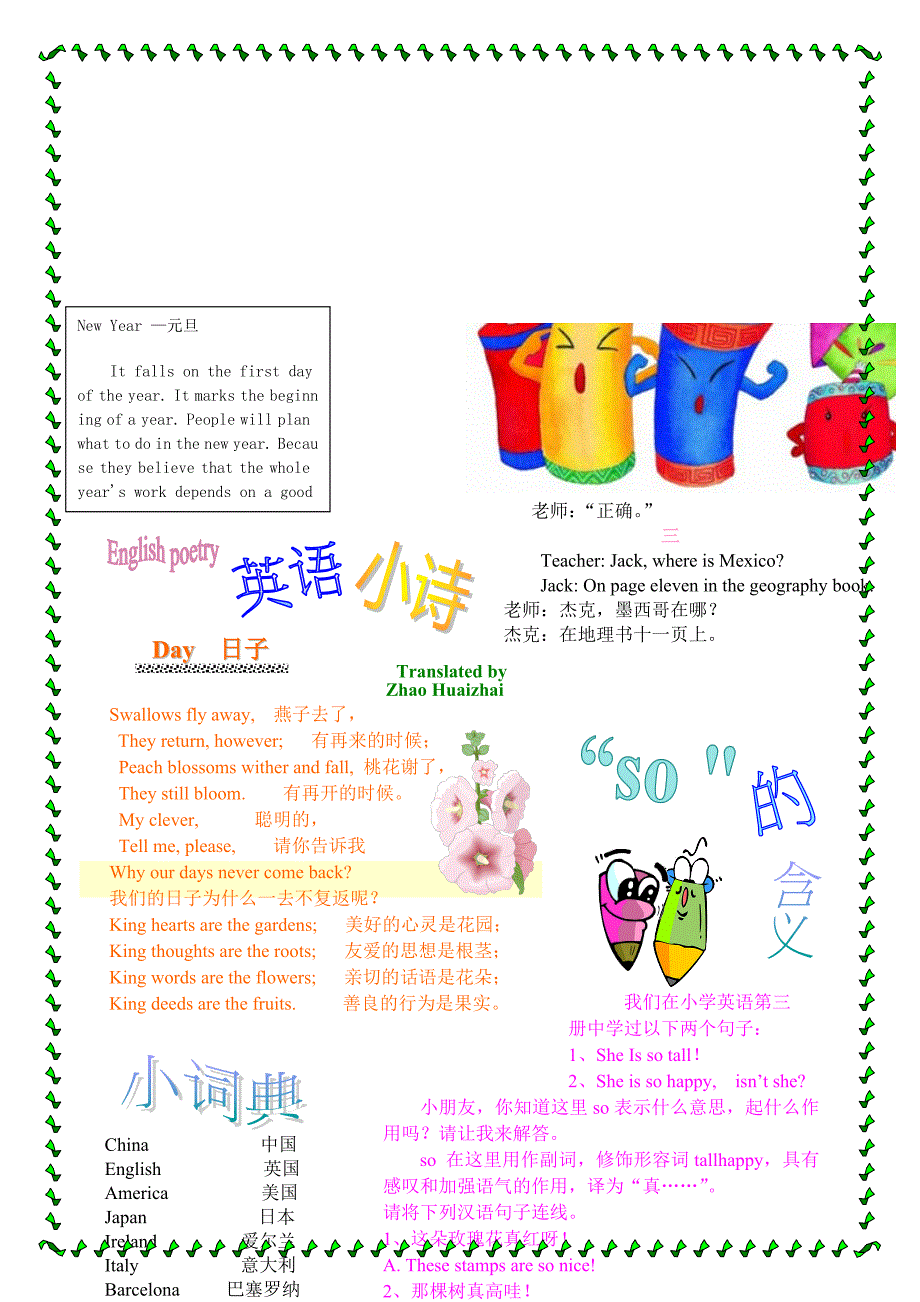 New Year —元旦
It falls on the first day
of the year. It marks the beginn
ing of a year. People will plan
what to do in the new year. Becau
se they believe that the whole
year's work depends on a good
老师：“正确。”
三
Teacher: Jack, where is Mexico?
Jack: On page eleven in the geography book.
老师：杰克，墨西哥在哪？
杰克：在地理书十一页上。
English poetry
英语小诗
Day 日子
Translated by
Zhao Huaizhai
Swallows fly away, 燕子去了，
They return, however; 有再来的时候；
Peach blossoms wither and fall, 桃花谢了，
They still bloom. 有再开的时候。
My clever, 聪明的，
Tell me, please, 请你告诉我
Why our days never come back?
我们的日子为什么一去不复返呢？
King hearts are the gardens; 美好的心灵是花园；
King thoughts are the roots; 友爱的思想是根茎；
King words are the flowers; 亲切的话语是花朵；
King deeds are the fruits. 善良的行为是果实。
“so "的
含义
我们在小学英语第三
册中学过以下两个句子：
1、She Is so tall！
2、She is so happy, isn't she?
小朋友，你知道这里 so 表示什么意思，起什么作
用吗？请让我来解答。
so 在这里用作副词，修饰形容词 tallhappy，具有
感叹和加强语气的作用，译为“真……”。
请将下列汉语句子连线。
1、这朵玫瑰花真红呀！
A. These stamps are so nice!
2、那棵树真高哇！
小词典
China 中国
English 英国
America 美国
Japan 日本
Ireland 爱尔兰
Italy 意大利
Barcelona 巴塞罗纳